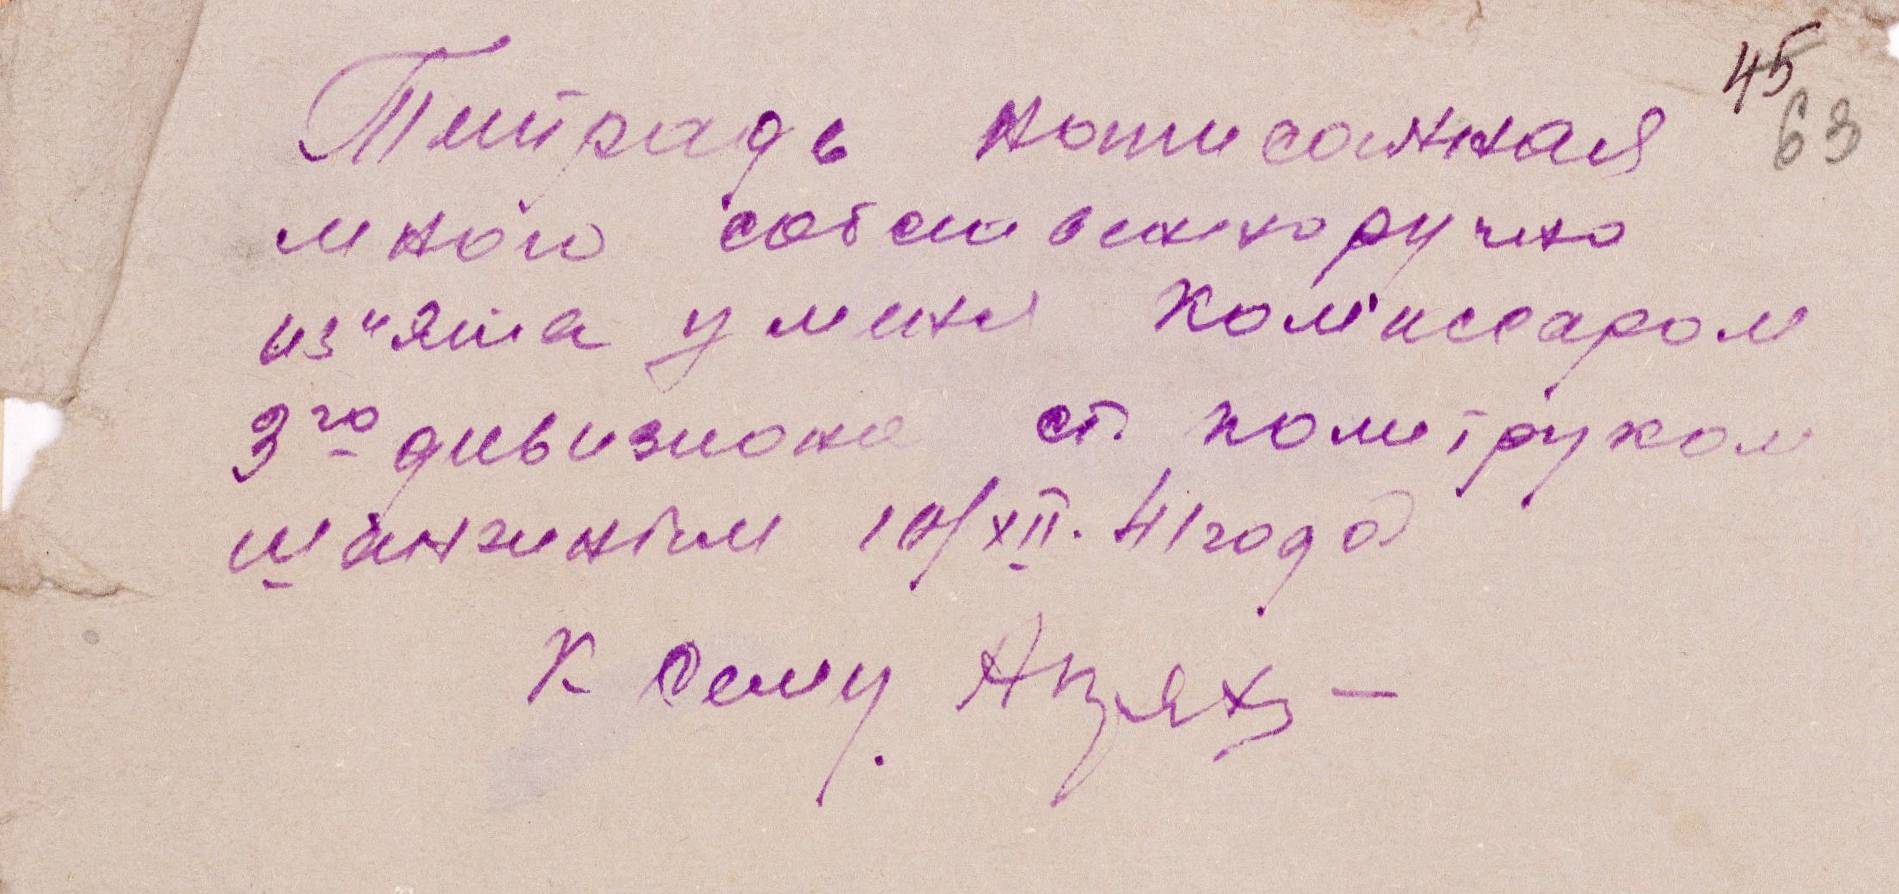 45
63
Тетрадь написанная
мною собственноручно
из"ята у меня Комиссаром
3го дивизиона ст. политруком
10/XII. 41 года
К сему